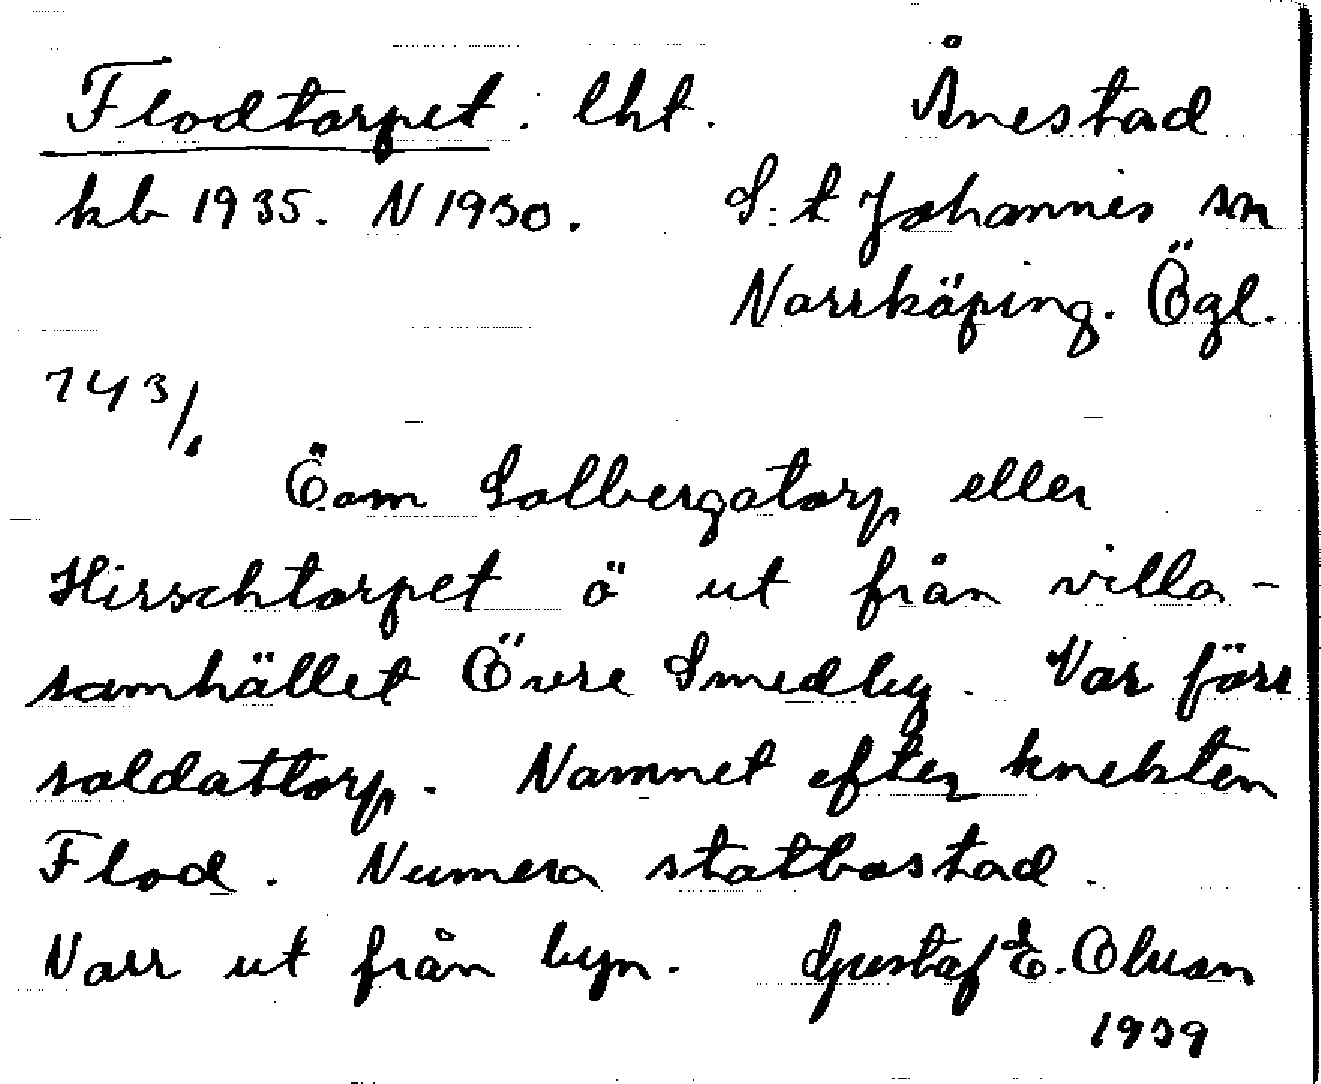 Flodtorpet. lht. Ånestad
kb 1935. N 1930. S:t Johannis sn
Norrköping. Ögl.
743/.
Öom Solbergatorp eller
Hirschtorpet ö ut från villa-
samhället Övre Smedby. Var förr
soldattorp. Namnet efter knekten
Flod. Numera statbostad.
Norr ut från byn. Gustaf E. Olsson
1939